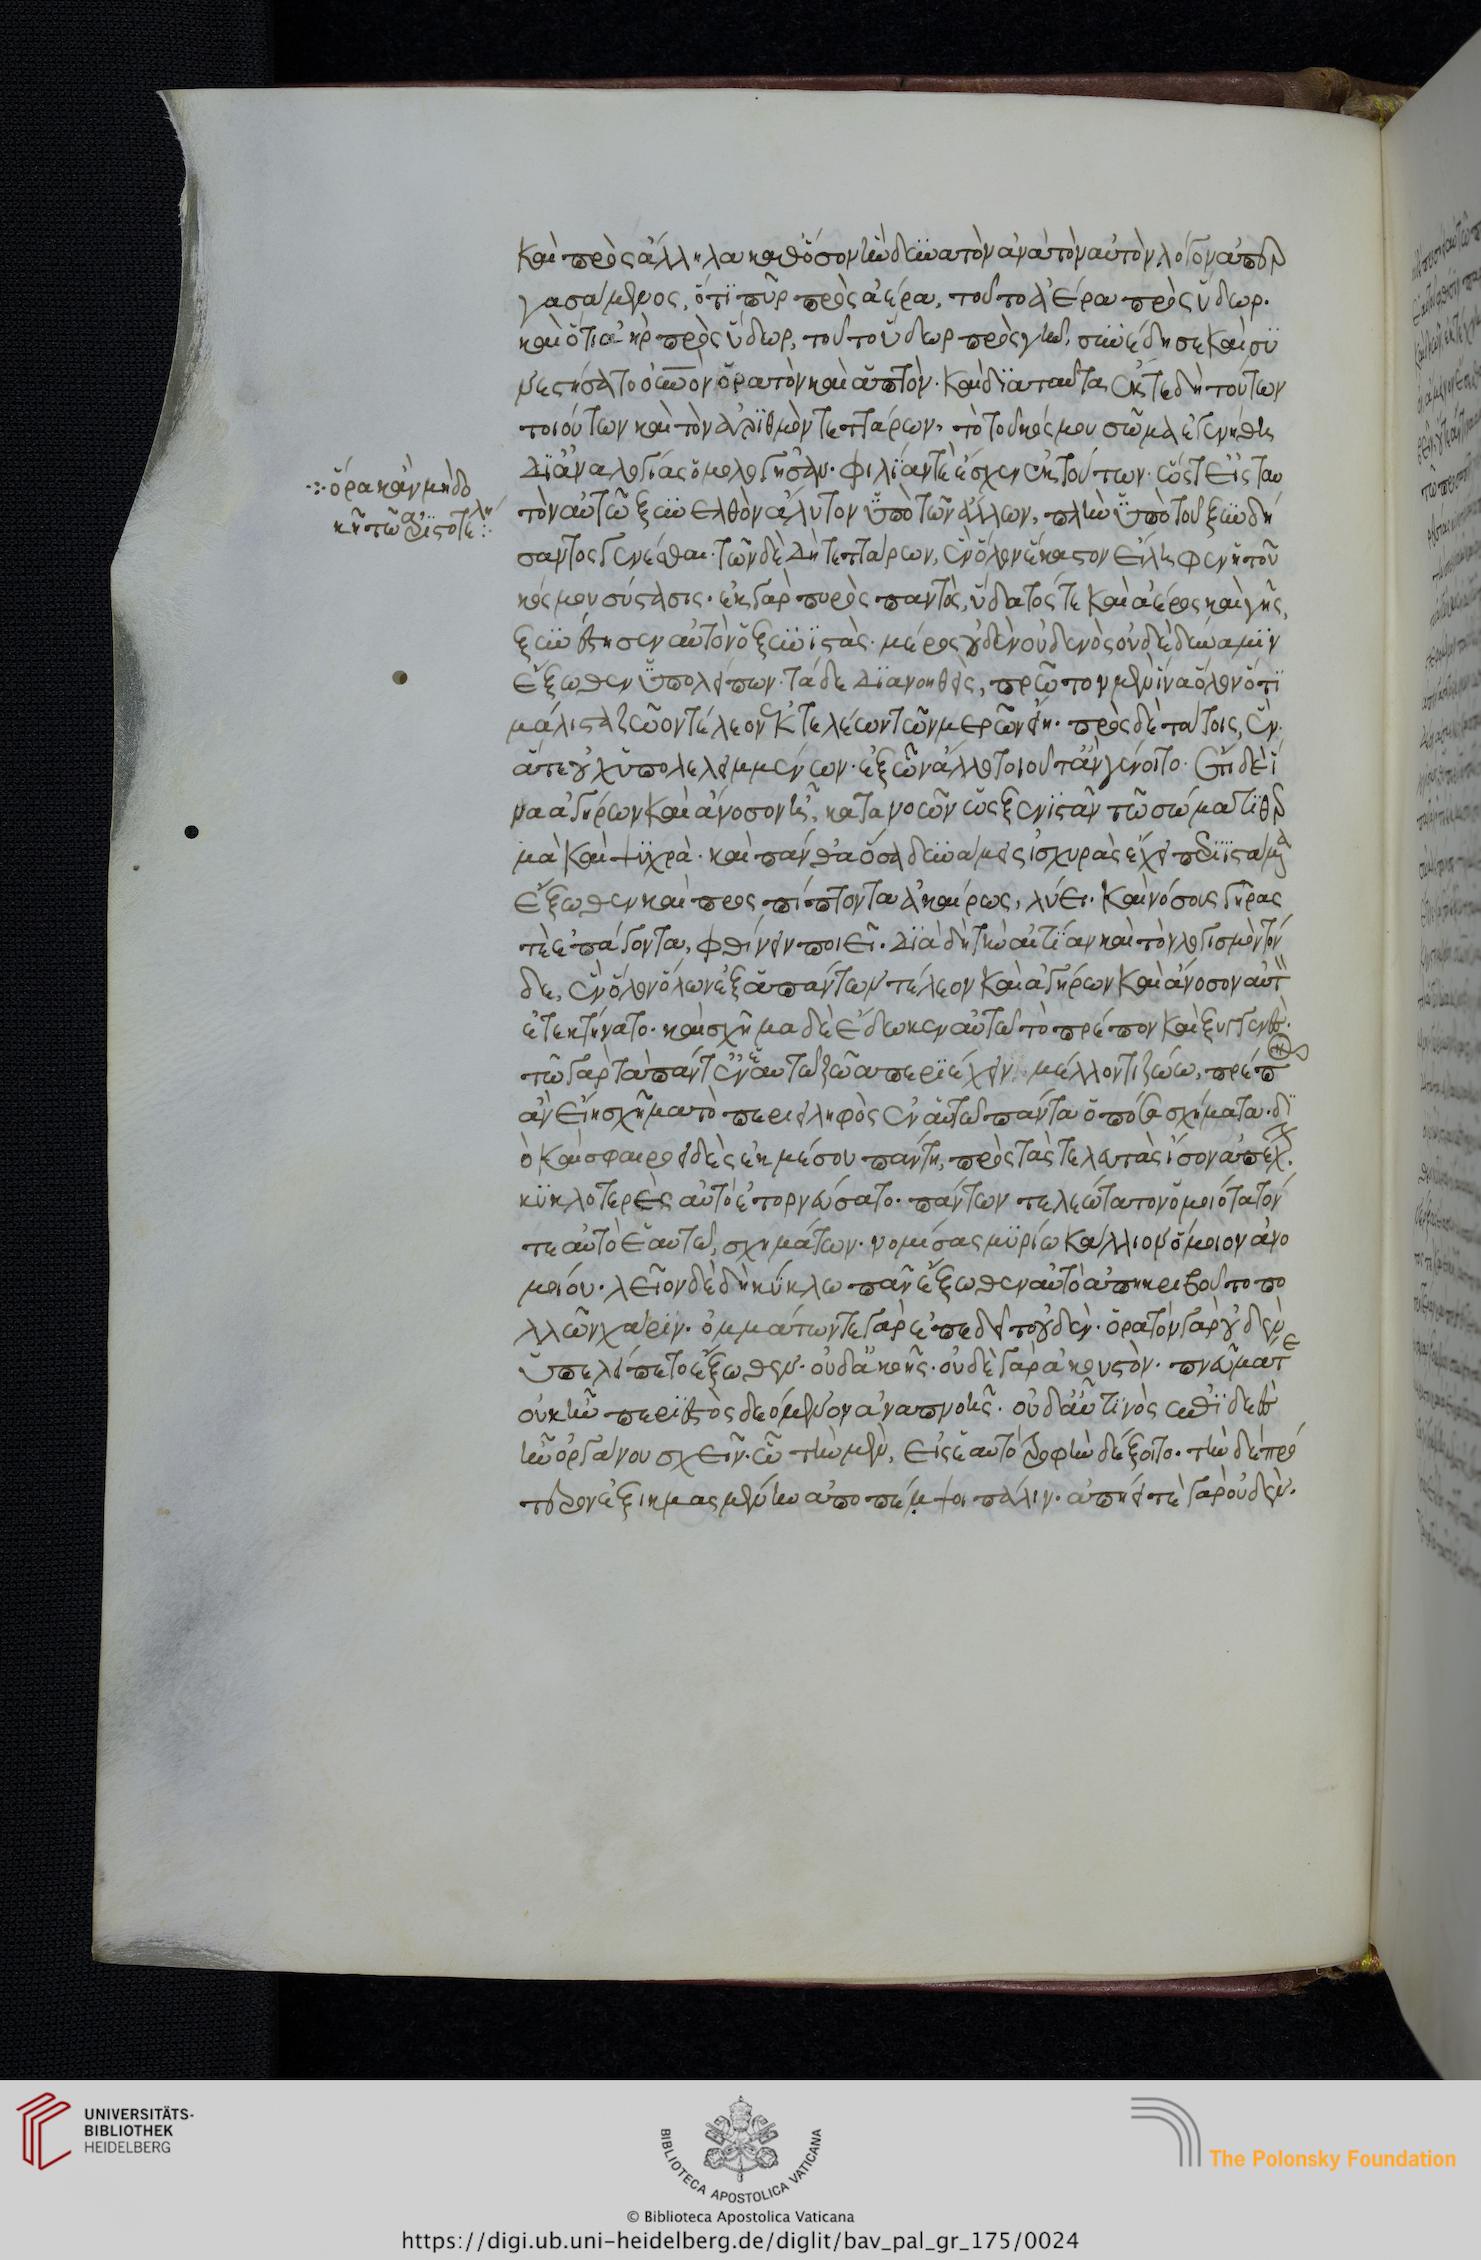 καὶ πρὸς ἄλληλα καθόσον ἦν δυνατὸν ἀνὰ τὸν αὐτὸν λόγον ἀπερ
γασάμενος, ὅτι πῦρ πρὸς ἀέρα, τοῦτο ἀέρα πρὸς ὕδωρ.
καὶ ὅτι ἀὴρ πρὸς ὕδωρ, τοῦτο ὕδωρ πρὸς γῆν, συνέδησε καὶ συ
νεστήσατο οὐνὸν ὁρατὸν καὶ ἁπτόν. καὶ διὰ ταῦτα ἔκ τε δὴ τούτων
τοιούτων καὶ τὸν ἀριθμὸν τεττάρων, τὸ τοῦ κόσμου σῶμα ἐγενήθη
δι' ἀναλογίας ὁμολογῆσαν. φιλίαν τὲ ἔσχεν ἐκ τούτων. ὥστ' εἰς ταυ
τὸν αὑτῶ ξυνελθὸν ἄλυτον ὑπὸ τῶν ἄλλων, πλὴν ὑπὸ τοῦ ξυνδή
σαντος γενέσθαι. τῶν δὲ δὴ τεττάρων, ἓν ὅλον ἕκαστον εἴληφεν ἡ τοῦ
κόσμου σύστασις. ἐκ γὰρ πυρὸς παντὸς, ὕδατός τε καὶ ἀέρος καὶ γῆς,
ξυνέστησεν αὐτὸν ὁ ξυνϊστάς. μέρος οὐδὲν οὐδενὸς οὐδὲ δύναμιν
ἔξωθεν ὑπολείπων. τάδε διανοηθεὶς, πρῶτον μὲν ἵνα ὅλον ὅτι
μάλιστα ζῶον τέλεον ἐκ τελέων τῶν μερῶν εἴη. πρὸς δὲ τούτοις, ἓν.
ἅτε οὐχ ὑπολελειμμένων. ἐξ ὧν ἄλλο τοιοῦτ' ἂν γένοιτο. ἔτι δὲ ἵ
να ἀγήρων καὶ ἄνοσον ᾖ, κατανοῶν ὡς ξυνϊστᾶν τῶ σώματι θερ
μὰ καὶ ψυχρά. καὶ πάνθ' ὅσα δυνάμεις ἰσχυρὰς ἔχει περιϊστάμενα
ἔξωθεν καὶ προσπίπτοντα ἀκαίρως, λύει. καὶ νόσους γῆρας
τὲ ἐπάγοντα, φθίνειν ποιεῖ. διὰ δὴ τὴν αἰτίαν καὶ τὸν λογισμὸν τόν
δε, ἓν ὅλον ὅλων ἐξ ἁπάντων τέλεον καὶ ἀγήρων καὶ ἄνοσον αὐτὸν
ἐτεκτήνατο. καὶ σχῆμα δὲ ἔδωκεν αὐτῶ τὸ πρέπον καὶ ξυγγενές.
τῶ γὰρ τὰ πάντ' ἐν ἑαυτῶ ζῶα περιέχειν μέλλοντι ζώω, πρέπον
ἂν εἴη σχῆμα τὸ περιειληφὸς ἐν αὑτῶ πάντα ὁπόσα σχήματα. δι
ὸ καὶ σφαιροειδὲς ἐκ μέσου πάντη, πρὸς τὰς τελευτὰς ἴσον ἀπέχον.
κυκλοτερὲς αὐτὸ ἐτορνεύσατο. πάντων τελεώτατον ὁμοιότατόν
τε αὐτὸ ἑαυτῶ, σχημάτων. νομίσας μυρίω κάλλιον ὅμοιον ἀνο
μοίου. λεῖον δὲ δὴ κύκλω πᾶν ἔξωθεν αὐτὸ ἀπηκριβοῦτο πο
λλῶν χάριν. ὀμμάτων τε γὰρ ἐπεδεῖτο οὐδέν. ὁρατὸν γὰρ οὐδὲν
ὑπελείπετο ἔξωθεν. οὐδ' ἀκοῆς. οὐδὲ γὰρ ἀκουστόν. πνεῦμά τε
οὐκ ἦν περιεστὸς δεόμενον ἀναπνοῆς. οὐδ' αὖ τινὸς ἐπιδεὲς
ἦν ὀργάνου σχεῖν. ᾧ τὴν μὲν, εἰς ἑαυτὸ τροφὴν δέξοιτο. τὴν δὲ πρό
τερον ἐξικμασμένην ἀποπέμψοι πάλιν. ἀπῄει τὲ γὰρ οὐδέν.
ὅρα κἀν μὴ δο
κῆ τῶ ἀριστοτέλη
UNIVERSITÄTS-
BIBLIOTHEK
HEIDELBERG
BIBLIOTECA APOSTOLICA VATICANA
The Polonsky Foundation
© Biblioteca Apostolica Vaticana
https://digi.ub.uni-heidelberg.de/diglit/bav_pal_gr_175/0024